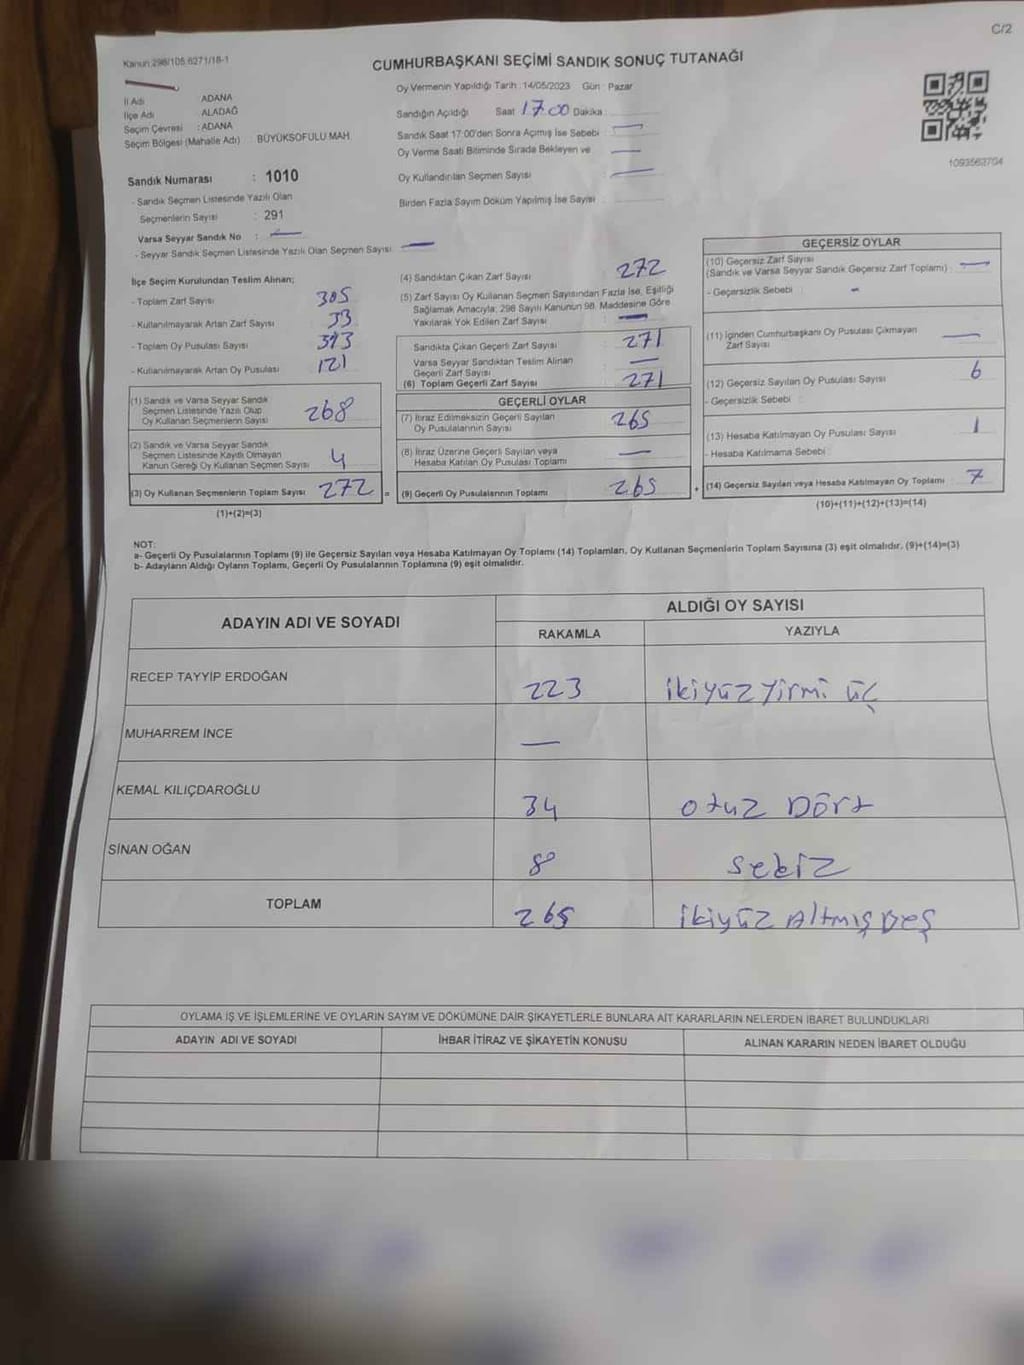 C/2
Kanun:298/105,6271/18-1
CUMHURBAŞKANI SEÇİMİ SANDIK SONUÇ TUTANAĞI
Oy Vermenin Yapıldığı Tarih : 14/05/2023 Gün : Pazar
İl Adı : ADANA
İlçe Adı : ALADAĞ
Seçim Çevresi : ADANA
Seçim Bölgesi (Mahalle Adı) : BÜYÜKSOFULU MAH.
Sandığın Açıldığı Saat 17.00 Dakika :
Sandık Saat 17:00'den Sonra Açmış İse Sebebi : —
Oy Verme Saati Bitiminde Sırada Bekleyen ve —
Oy Kullandırılan Seçmen Sayısı : —
Birden Fazla Sayım Döküm Yapılmış İse Sayısı :
1093562704
Sandık Numarası : 1010
- Sandık Seçmen Listesinde Yazılı Olan
Seçmenlerin Sayısı : 291
Varsa Seyyar Sandık No : —
- Seyyar Sandık Seçmen Listesinde Yazılı Olan Seçmen Sayısı : —
İlçe Seçim Kurulundan Teslim Alınan;
- Toplam Zarf Sayısı 305
- Kullanılmayarak Artan Zarf Sayısı 33
- Toplam Oy Pusulası Sayısı 393
- Kullanılmayarak Artan Oy Pusulası 121
(1) Sandık ve Varsa Seyyar Sandık
Seçmen Listesinde Yazılı Olup
Oy Kullanan Seçmenlerin Sayısı 268
(2) Sandık ve Varsa Seyyar Sandık
Seçmen Listesinde Kayıtlı Olmayan
Kanun Gereği Oy Kullanan Seçmen Sayısı 4
(3) Oy Kullanan Seçmenlerin Toplam Sayısı 272 =
(1)+(2)=(3)
(4) Sandıktan Çıkan Zarf Sayısı 272
(5) Zarf Sayısı Oy Kullanan Seçmen Sayısından Fazla İse, Eşitliği
Sağlamak Amacıyla, 298 Sayılı Kanunun 98. Maddesine Göre
Yakılarak Yok Edilen Zarf Sayısı : —
Sandıkta Çıkan Geçerli Zarf Sayısı : 271
Varsa Seyyar Sandıktan Teslim Alınan
Geçerli Zarf Sayısı : —
(6) Toplam Geçerli Zarf Sayısı : 271
GEÇERLİ OYLAR
(7) İtiraz Edilmeksizin Geçerli Sayılan
Oy Pusulalarının Sayısı : 265
(8) İtiraz Üzerine Geçerli Sayılan veya
Hesaba Katılan Oy Pusulası Toplamı : —
(9) Geçerli Oy Pusulalarının Toplamı : 265 +
GEÇERSİZ OYLAR
(10) Geçersiz Zarf Sayısı
(Sandık ve Varsa Seyyar Sandık Geçersiz Zarf Toplamı) : —
- Geçersizlik Sebebi : -
(11) İçinden Cumhurbaşkanı Oy Pusulası Çıkmayan
Zarf Sayısı —
(12) Geçersiz Sayılan Oy Pusulası Sayısı 6
- Geçersizlik Sebebi :
(13) Hesaba Katılmayan Oy Pusulası Sayısı 1
- Hesaba Katılmama Sebebi :
(14) Geçersiz Sayılan veya Hesaba Katılmayan Oy Toplamı : 7
(10)+(11)+(12)+(13)=(14)
NOT:
a- Geçerli Oy Pusulalarının Toplamı (9) ile Geçersiz Sayılan veya Hesaba Katılmayan Oy Toplamı (14) Toplamları, Oy Kullanan Seçmenlerin Toplam Sayısına (3) eşit olmalıdır. (9)+(14)=(3)
b- Adayların Aldığı Oyların Toplamı, Geçerli Oy Pusulalarının Toplamına (9) eşit olmalıdır.
ADAYIN ADI VE SOYADI
ALDIĞI OY SAYISI
RAKAMLA YAZIYLA
RECEP TAYYİP ERDOĞAN 223 ikiyüz Yirmi üç
MUHARREM İNCE —
KEMAL KILIÇDAROĞLU 34 otuz Dört
SİNAN OĞAN 8 sekiz
TOPLAM 265 ikiyüz Altmış Beş
OYLAMA İŞ VE İŞLEMLERİNE VE OYLARIN SAYIM VE DÖKÜMÜNE DAİR ŞİKAYETLERLE BUNLARA AİT KARARLARIN NELERDEN İBARET BULUNDUKLARI
ADAYIN ADI VE SOYADI
İHBAR İTİRAZ VE ŞİKAYETİN KONUSU
ALINAN KARARIN NEDEN İBARET OLDUĞU